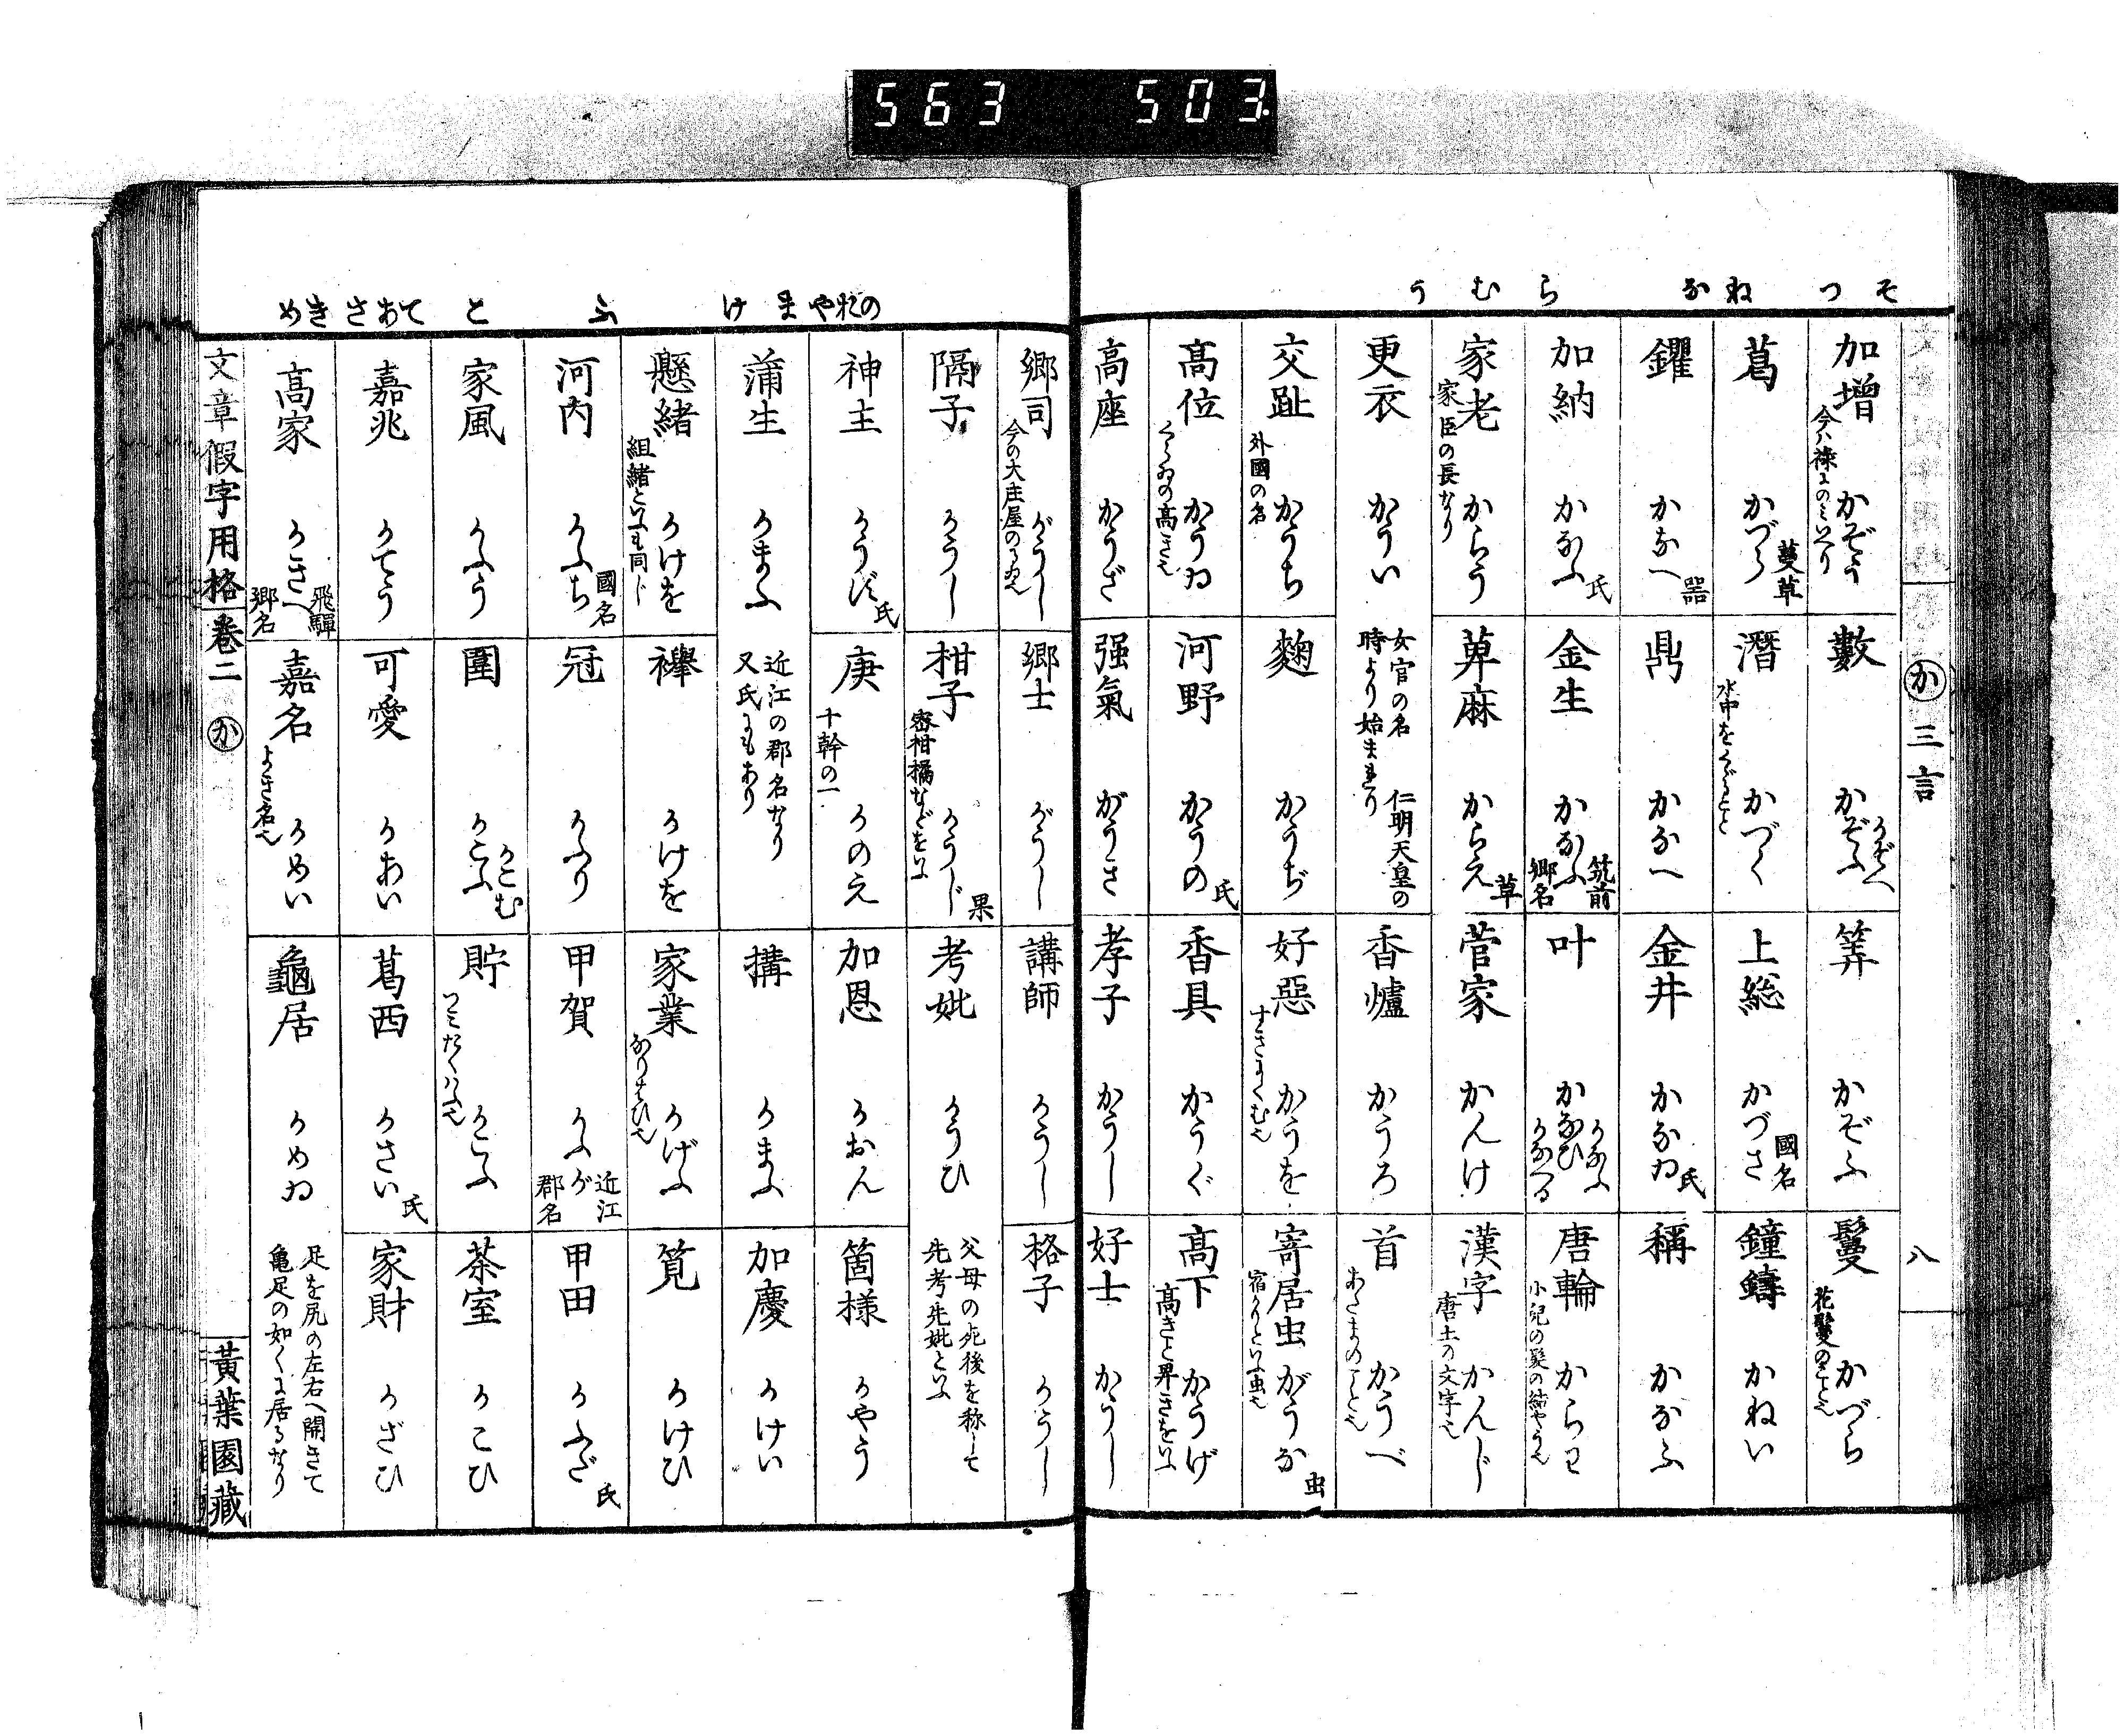 563 503.
そ つ ね な ら む う
か 三言 八
加増 かぞう
數 かぞふ かぞへ
筭 かぞふ
鬘 かづら 花鬘のこと也
葛 かづら 蔓草
潛 かづく 水中をくゞること
上総 かづさ 國名
鐘鑄 かねい
鑵 かなへ 器
鼎 かなへ
金井 かなゐ 氏
稱 かなふ
加納 かなふ 氏
金生 かなふ 筑前 郷名
叶 かなひ かなふ かなへる
唐輪 からわ 小兒の髪の結やう也
家老 からう 家臣の長なり
萆麻 からえ 草
菅家 かんけ
漢字 かんじ 唐土の文字也
更衣 かうい 女官の名 仁明天皇の時より始まれり
香爐 かうろ
首 かうべ あたまのこと也
交趾 かうち 外國の名
麴 かうぢ
好惡 かうを すきにくむ也
寄居虫 がうな 宿かりといふ虫也 虫
高位 かうゐ くらゐの高き也
河野 かうの 氏
香具 かうぐ
高下 かうげ 高きと卑きをいふ
高座 かうざ
强氣 がうき
孝子 かうし
好士 かうし
の れ や ま け ふ と て あ さ き め
郷司 がうし
郷士 がうし
講師 かうし
格子 かうし
隔子 かうし
柑子 かうじ 密柑橘などをいふ 果
考妣 かうひ 父母の死後を称して先考先妣といふ
神主 かうず 氏
庚 かのえ 十幹の一
加恩 かおん
箇様 かやう
蒲生 かまふ 近江の郡名なり又氏にもあり
搆 かまふ
加慶 かけい
懸緒 かけを 組緒といふも同じ
襷 かけを
家業 かげふ なりはひ也
筧 かけひ
河内 かふち 國名
冠 かふり
甲賀 かふが 近江 郡名
甲田 かふだ 氏
家風 かふう
圍 かこふ かこむ
貯 かこふ
茶室 かこひ
嘉兆 かてう
可愛 かあい
葛西 かさい 氏
家財 かざひ
高家 かさへ 飛騨 郷名
嘉名 かめい よき名也
龜居 かめゐ 足を尻の左右へ開きて亀足の如くに居るなり
文章假字用格 卷二 か 黃葉園藏